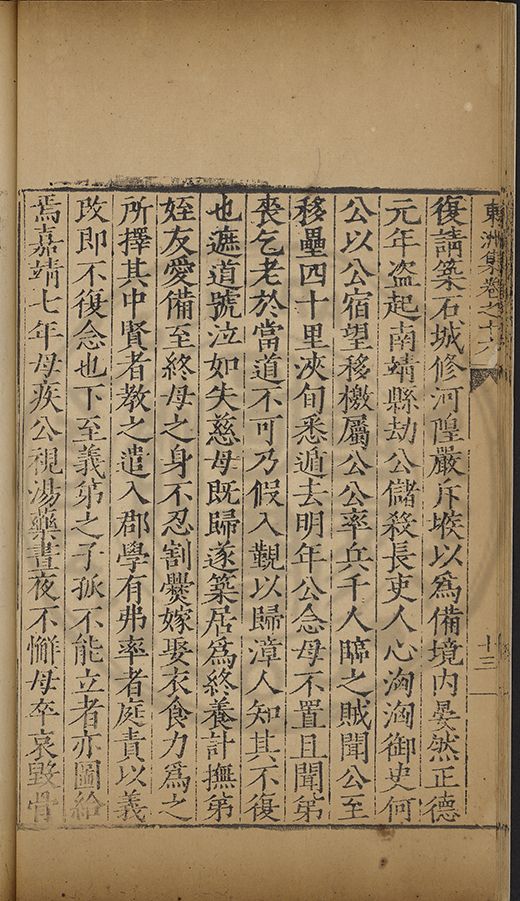 東洲集卷之十六
十三
復請築石城修河隍嚴斥堠以為備境內晏然正德
元年盜起南靖縣劫公儲殺長吏人心洶洶御史何
公以公宿望移檄屬公公率兵千人臨之賊聞公至
移壘四十里浹旬悉遁去明年公念母不置且聞第
喪乞老於當道不可乃假入覲以歸漳人知其不復
也遮道號泣如失慈母既歸遂築居為終養計撫第
姪友愛備至終母之身不忍割爨嫁娶衣食力為之
所擇其中賢者教之遣入郡學有弗率者庭責以義
改即不復念也下至義第之子孤不能立者亦圖給
焉嘉靖七年母疾公視湯藥晝夜不懈母卒哀毀骨